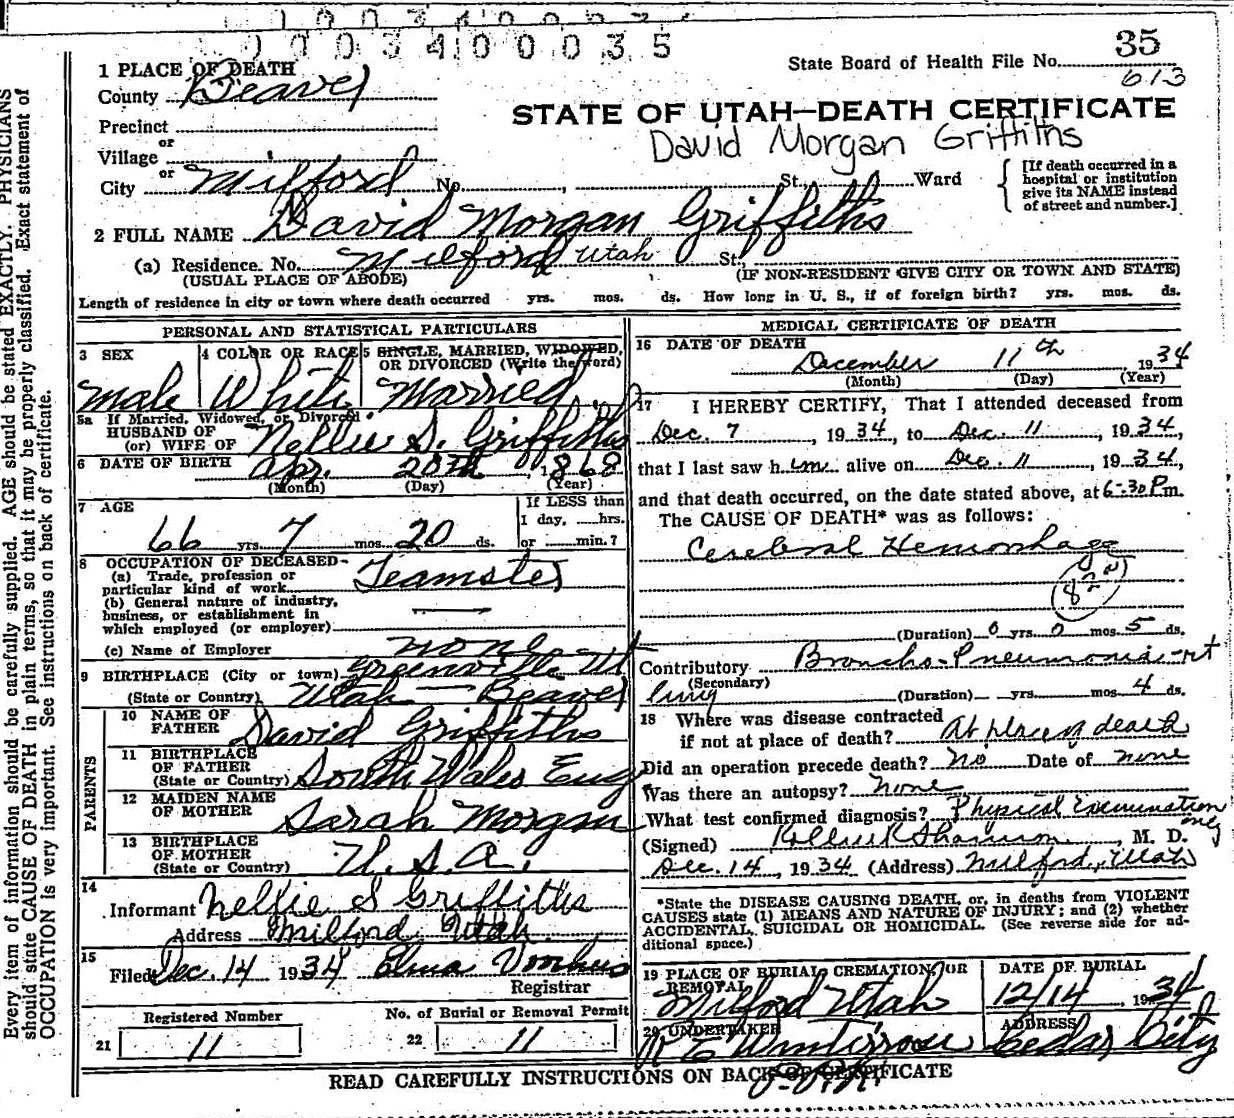 0003400035
35
State Board of Health File No.
613
1 PLACE OF DEATH
County Beaver
STATE OF UTAH—DEATH CERTIFICATE
Precinct
or
David Morgan Griffiths
Village
or
City Milford No. , St. Ward
[If death occurred in a hospital or institution give its NAME instead of street and number.]
2 FULL NAME David Morgan Griffiths
(a) Residence. No. Milford Utah St.,
(USUAL PLACE OF ABODE) (IF NON-RESIDENT GIVE CITY OR TOWN AND STATE)
Length of residence in city or town where death occurred yrs. mos. ds. How long in U. S., if of foreign birth? yrs. mos. ds.
PERSONAL AND STATISTICAL PARTICULARS
3 SEX
male
4 COLOR OR RACE
White
5 SINGLE, MARRIED, WIDOWED,
OR DIVORCED (Write the word)
Married
5a If Married, Widowed, or Divorced
HUSBAND OF
(or) WIFE OF Nellie S. Griffiths
6 DATE OF BIRTH Apr. 20th, 1868
(Month) (Day) (Year)
7 AGE
66 yrs. 7 mos. 20 ds.
If LESS than
1 day, ----hrs.
or ----min.?
8 OCCUPATION OF DECEASED—
(a) Trade, profession or
particular kind of work Teamster
(b) General nature of industry,
business, or establishment in
which employed (or employer)
(c) Name of Employer none
9 BIRTHPLACE (City or town) Greenville Ut
(State or Country) Utah — Beaver
PARENTS
10 NAME OF
FATHER David Griffiths
11 BIRTHPLACE
OF FATHER
(State or Country) South Wales Eng
12 MAIDEN NAME
OF MOTHER Sarah Morgan
13 BIRTHPLACE
OF MOTHER
(State or Country) U.S.A.
14
Informant Nellie S Griffiths
Address Milford, Utah.
15
Filed Dec. 14 1934 Elma
Registrar
Registered Number
21 11
No. of Burial or Removal Permit
22 11
MEDICAL CERTIFICATE OF DEATH
16 DATE OF DEATH
December 11th, 1934
(Month) (Day) (Year)
17 I HEREBY CERTIFY, That I attended deceased from
Dec. 7, 1934, to Dec. 11, 1934,
that I last saw him alive on Dec. 11, 1934,
and that death occurred, on the date stated above, at 6:30 P.m.
The CAUSE OF DEATH* was as follows:
Cerebral Hemorrhage
(Duration) 0 yrs. 0 mos. 5 ds.
Contributory Broncho-Pneumonia-rt
(Secondary)
lung (Duration) yrs. mos. 4 ds.
18 Where was disease contracted
if not at place of death? At place of death
Did an operation precede death? No Date of none
Was there an autopsy? None
What test confirmed diagnosis? Physical Examination
only
(Signed) M. D.
Dec. 14, 1934 (Address) Milford, Utah
*State the DISEASE CAUSING DEATH, or, in deaths from VIOLENT
CAUSES state (1) MEANS AND NATURE OF INJURY; and (2) whether
ACCIDENTAL, SUICIDAL OR HOMICIDAL. (See reverse side for ad-
ditional space.)
19 PLACE OF BURIAL, CREMATION, OR
REMOVAL
Milford Utah
DATE OF BURIAL
12/14, 1934
20 UNDERTAKER
ADDRESS
Cedar City
READ CAREFULLY INSTRUCTIONS ON BACK OF CERTIFICATE
Every item of information should be carefully supplied. AGE should be stated EXACTLY. PHYSICIANS
should state CAUSE OF DEATH in plain terms, so that it may be properly classified. Exact statement of
OCCUPATION is very important. See instructions on back of certificate.